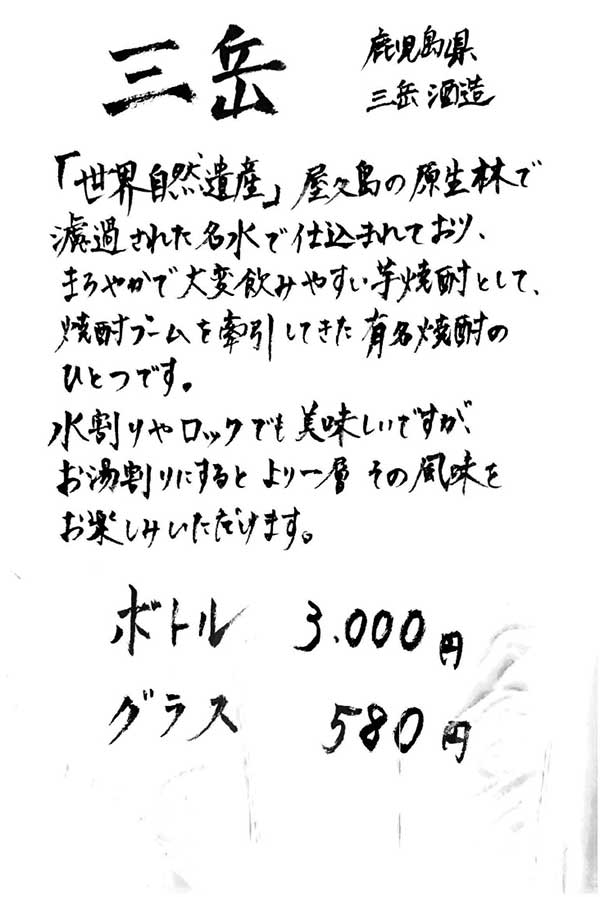 三岳
鹿児島県
三岳酒造
「世界自然遺産」屋久島の原生林で
濾過された名水で仕込まれており、
まろやかで大変飲みやすい芋焼酎として、
焼酎ブームを牽引してきた有名焼酎の
ひとつです。
水割りやロックでも美味しいですが、
お湯割りにするとより一層その風味を
お楽しみいただけます。
ボトル 3.000円
グラス 580円